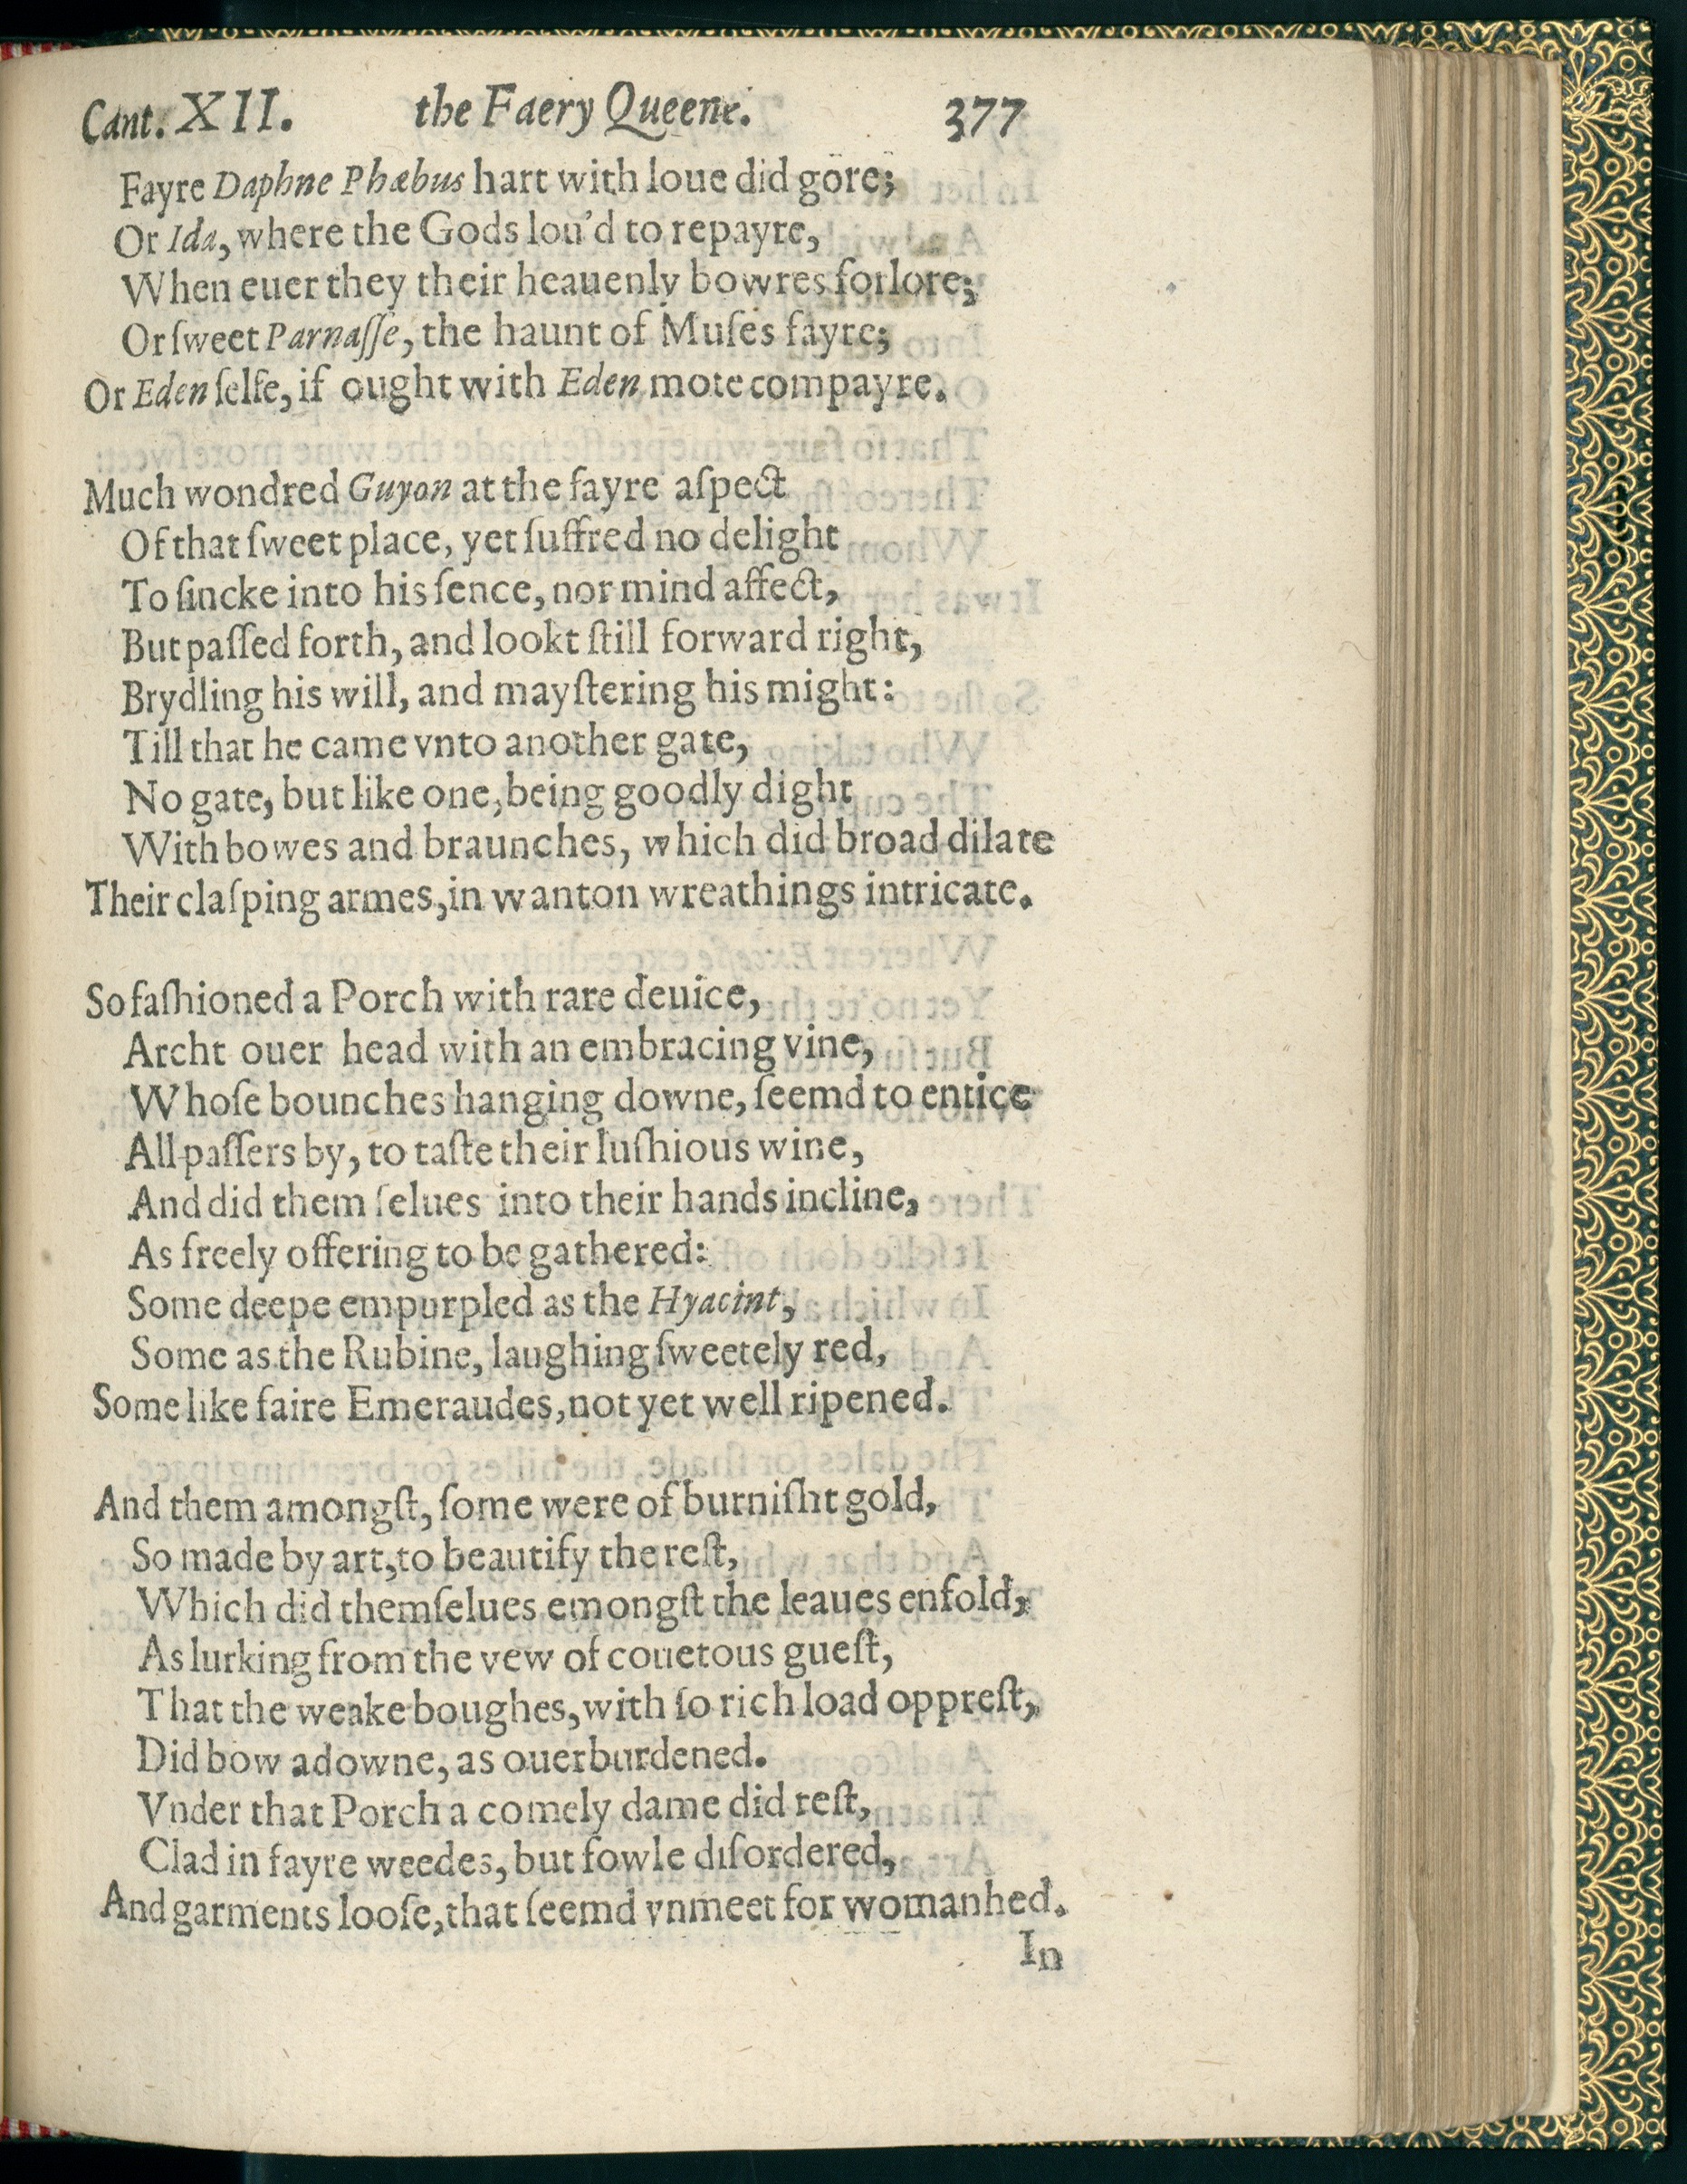 Cant. XII. the Faery Queene. 377
Fayre Daphne Phæbus hart with loue did gore;
Or Ida, where the Gods lou'd to repayre,
When euer they their heauenly bowres forlore;
Or ſweet Parnaſſe, the haunt of Muſes fayre;
Or Eden ſelfe, if ought with Eden mote compayre.
Much wondred Guyon at the fayre aſpect
Of that ſweet place, yet ſuffred no delight
To ſincke into his ſence, nor mind affect,
But paſſed forth, and lookt ſtill forward right,
Brydling his will, and mayſtering his might:
Till that he came vnto another gate,
No gate, but like one, being goodly dight
With bowes and braunches, which did broad dilate
Their claſping armes, in wanton wreathings intricate.
So faſhioned a Porch with rare deuice,
Archt ouer head with an embracing vine,
Whoſe bounches hanging downe, ſeemd to entice
All paſſers by, to taſte their luſhious wine,
And did them ſelues into their hands incline,
As freely offering to be gathered:
Some deepe empurpled as the Hyacint,
Some as the Rubine, laughing ſweetely red,
Some like faire Emeraudes, not yet well ripened.
And them amongſt, ſome were of burniſht gold,
So made by art, to beautify the reſt,
Which did themſelues emongſt the leaues enfold,
As lurking from the vew of couetous gueſt,
That the weake boughes, with ſo rich load oppreſt,
Did bow adowne, as ouerburdened.
Vnder that Porch a comely dame did reſt,
Clad in fayre weedes, but fowle diſordered,
And garments looſe, that ſeemd vnmeet for womanhed.
In